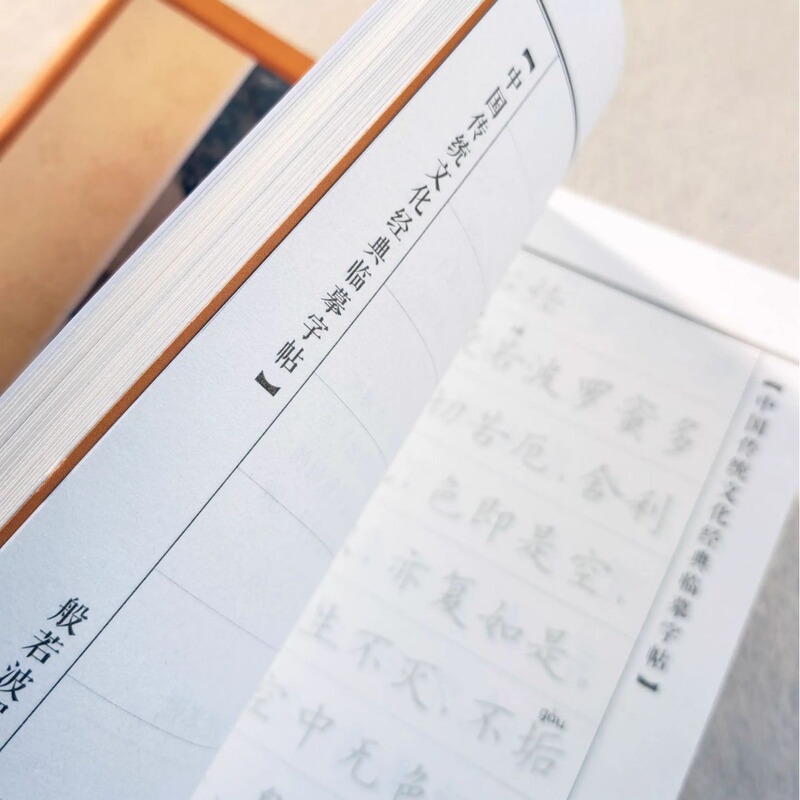 【中国传统文化经典临摹字帖】
般若波
若波罗蜜多
切苦厄，舍利
色即是空，
亦复如是，
gòu
生不灭，不垢
空中无色
【中国传统文化经典临摹字帖】